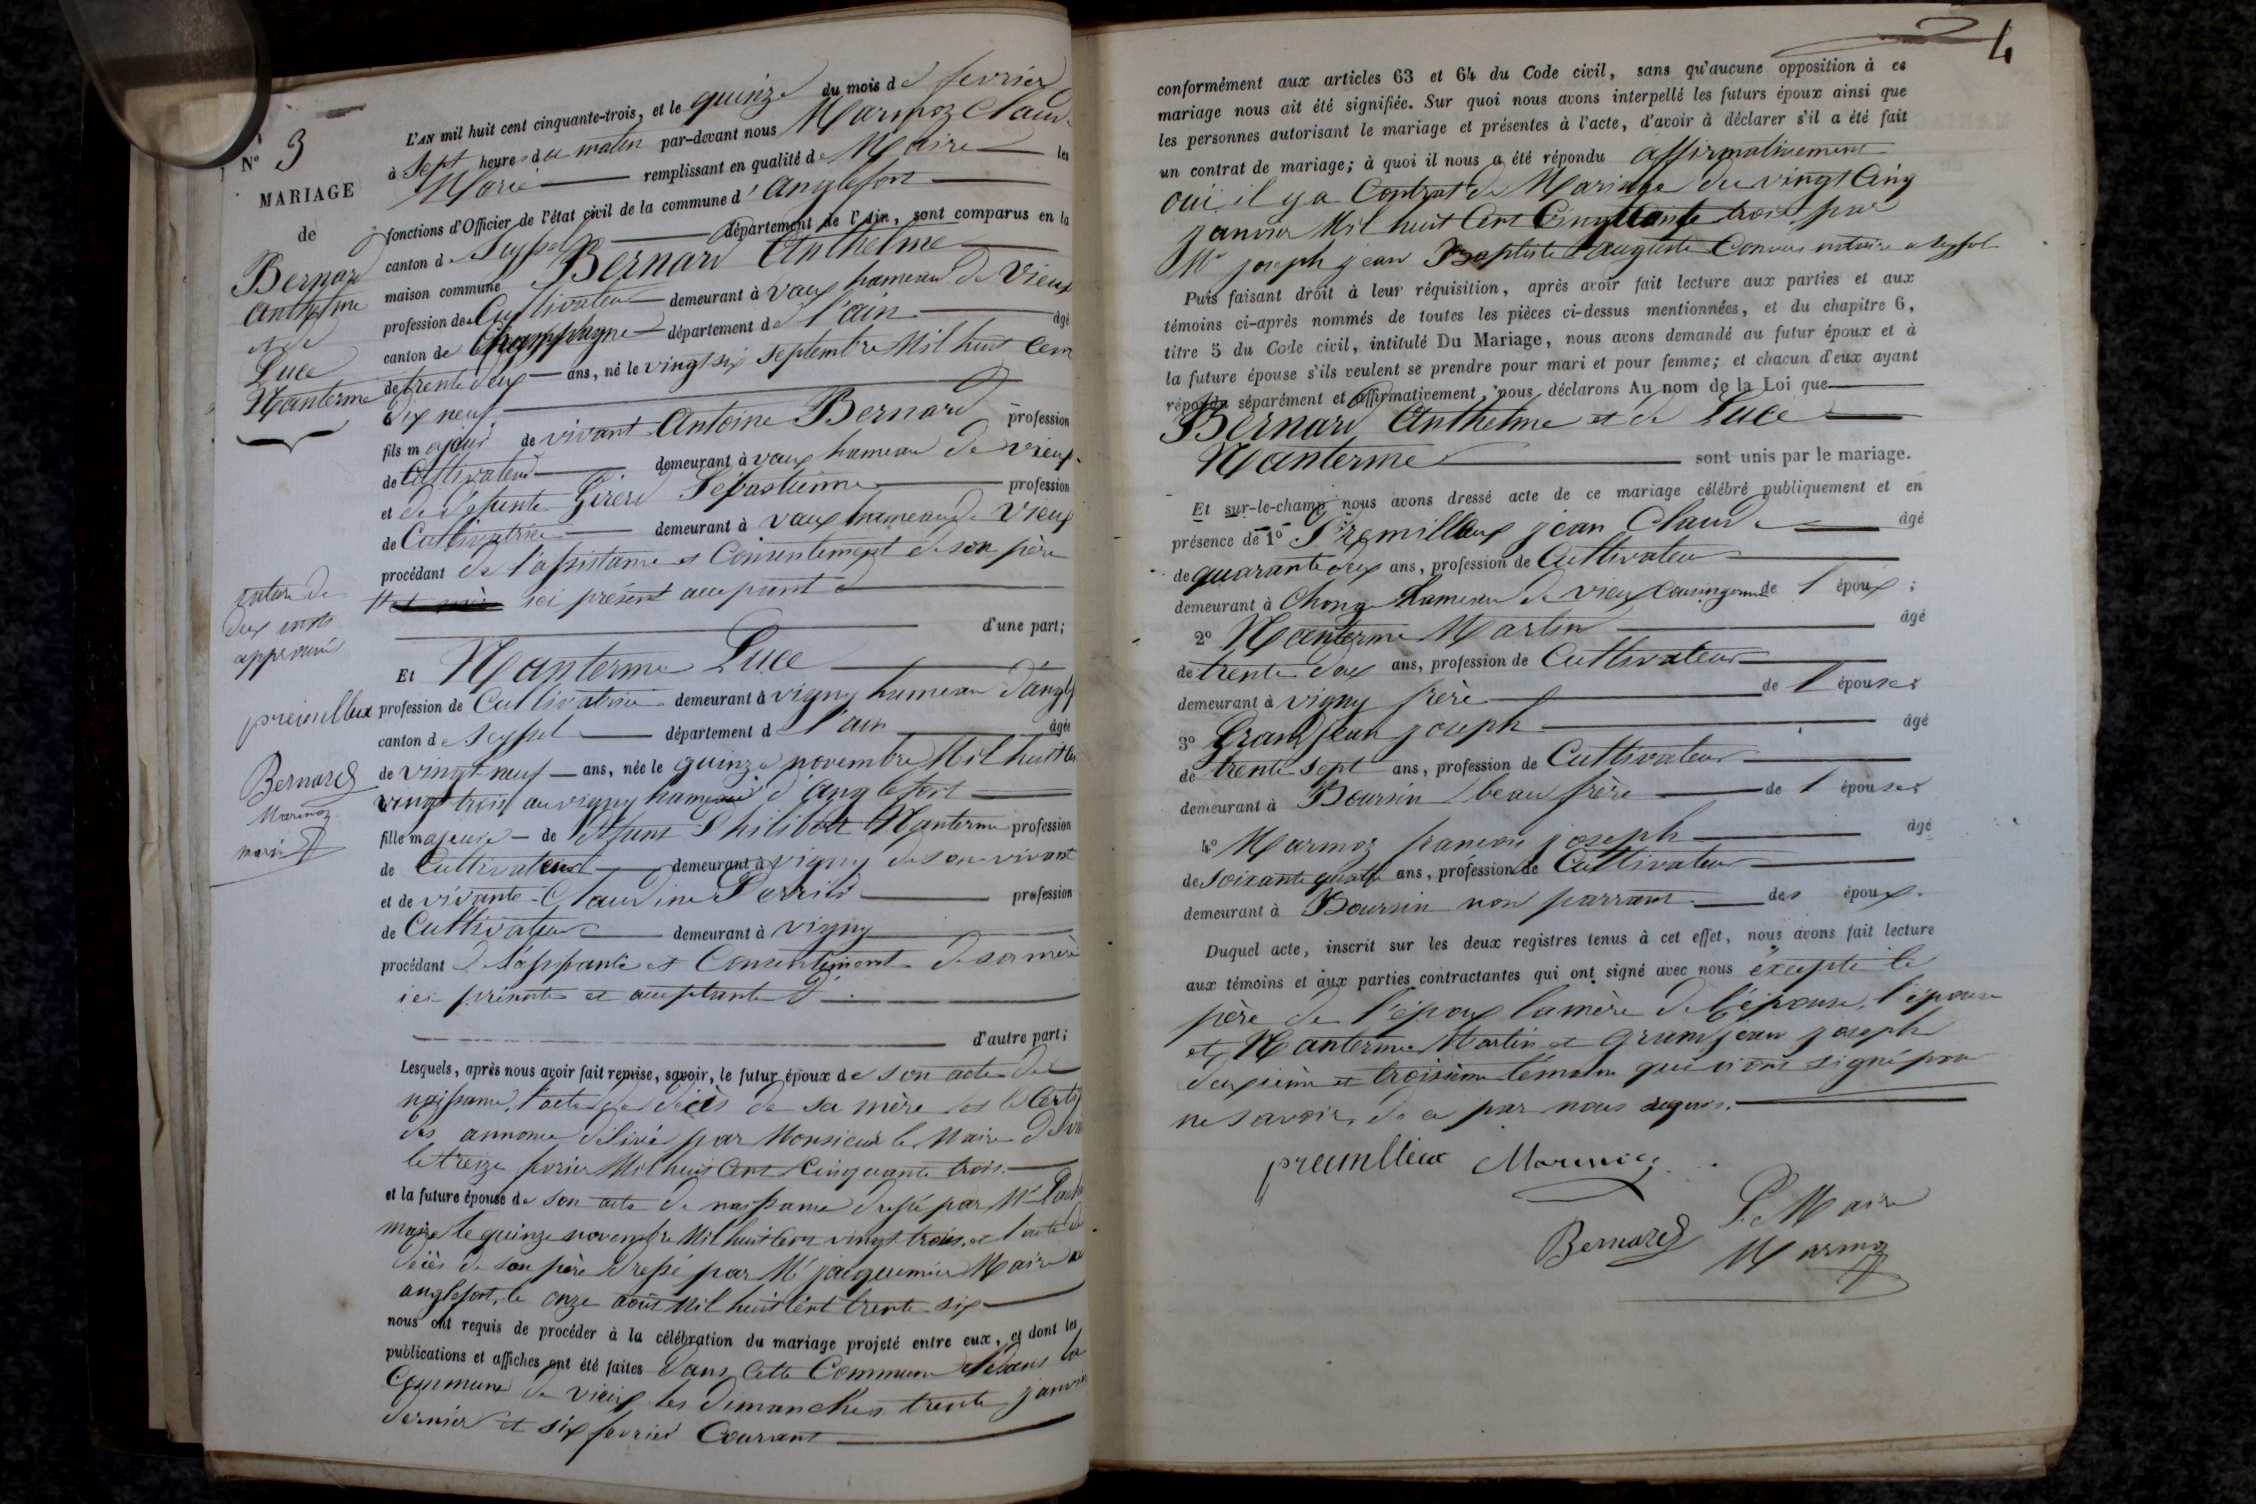 N° 3
MARIAGE
de
Bernard
Anthelme
et de
Luce
Nanterme
rature de
deux mots
approuvé
premillieux
Bernard
Marmoz
L'AN mil huit cent cinquante-trois, et le quinze du mois de fevrier
à Sept heures du matin par-devant nous Marmoz Claude
Marie remplissant en qualité de Maire les
fonctions d'Officier de l'état civil de la commune d'anglefort
canton de Seyssel département de l'Ain, sont comparus en la
maison commune Bernard Anthelme
profession de Cultivateur demeurant à vaux hameau de Vieux
canton de Champagne département de l'ain âgé
de trente deux ans, né le vingt six septembre Mil huit Cent
dix neuf
fils majeur de vivant Antoine Bernard profession
de Cultivateur demeurant à vaux hameau de vieux
et de défunte Girerd Sébastienne profession
de Cultivatrice demeurant à vaux hameau de Vieux
procédant de l'assistance et Consentement de son père
ici présent acceptant
d'une part;
Et Nanterme Luce
profession de Cultivatrice demeurant à vigny hameau d'angl
canton de Seyssel département d l'ain âgée
de vingt neuf ans, née le quinze novembre Mil huit Ce
vingt trois au vigny hameau d'Anglefort
fille majeure de défunt Philibert Nanterme profession
de Cultivateur demeurant à vigny de son vivant
et de vivante Claudine profession
de Cultivateur demeurant à vigny
procédant de l'assistance et Consentement de sa mère
ici présente et acceptante
d'autre part;
Lesquels, après nous avoir fait remise, savoir, le futur époux de son acte de
naissance, l'acte de décès de sa mère et le Certif
des annonces délivré par Monsieur le Maire de vi
le treize fevrier Mil huit Cent Cinquante trois
et la future épouse de son acte de naissance dressé par Mr
maire le quinze novembre Mil huit Cent vingt trois, et l'acte de
décès de son père dressé par Mr jacquemier Maire
anglefort, le onze août Mil huit Cent trente six
nous ont requis de procéder à la célébration du mariage projeté entre eux, et dont les
publications et affiches ont été faites dans Cette Commune et dans la
Commune de vieux les dimanches trente janvier
dernier et six fevrier Courant
4
conformément aux articles 63 et 64 du Code civil, sans qu'aucune opposition à ce
mariage nous ait été signifiée. Sur quoi nous avons interpellé les futurs époux ainsi que
les personnes autorisant le mariage et présentes à l'acte, d'avoir à déclarer s'il a été fait
un contrat de mariage; à quoi il nous a été répondu affirmativement
oui il y a Contrat de Mariage du vingt Cinq
janvier Mil huit Cent Cinquante trois par
Mr joseph jean Baptiste auguste notaire a seyssel
Puis faisant droit à leur réquisition, après avoir fait lecture aux parties et aux
témoins ci-après nommés de toutes les pièces ci-dessus mentionnées, et du chapitre 6,
titre 5 du Code civil, intitulé Du Mariage, nous avons demandé au futur époux et à
la future épouse s'ils veulent se prendre pour mari et pour femme; et chacun d'eux ayant
répondu séparément et affirmativement, nous déclarons Au nom de la Loi que
Bernard Anthelme et de Luce
Nanterme sont unis par le mariage.
Et sur-le-champ nous avons dressé acte de ce mariage célébré publiquement et en
présence de 1° Premillieux jean Claude âgé
de quarante deux ans, profession de Cultivateur
demeurant à Chongne hameau de vieux Cousin germain de l'époux;
2° Nanterme Martin âgé
de trente deux ans, profession de Cultivateur
demeurant à vigny frère de l'épouse
3° Grandjean joseph âgé
de trente sept ans, profession de Cultivateur
demeurant à Boursin beau frère de l'épouse
4° Marmoz françois joseph âgé
de Soixante quatre ans, profession de Cultivateur
demeurant à Boursin non parrant des époux.
Duquel acte, inscrit sur les deux registres tenus à cet effet, nous avons fait lecture
aux témoins et aux parties contractantes qui ont signé avec nous excepté le
père de l'époux la mère de l'épouse, l'épouse
et Nanterme Martin et Grandjean joseph
deuxième et troisième témoin qui n'ont signé pour
ne savoir, de ce par nous requis.
premillieux Marmoz
Bernard
Le Maire
Marmoz